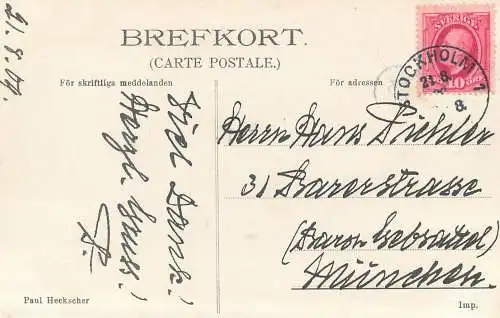 21.8.09.
BREFKORT.
(CARTE POSTALE.)
För skriftliga meddelanden
För adressen
SVERIGE
10 ÖRE
STOCKHOLM 1
21.8.
8.
Viel Dank!
Herzl. Gruss!
P.
Herrn Hans Pichler
31 Barerstrasse
(Baron Gebsattel)
München.
Paul Heckscher
Imp.